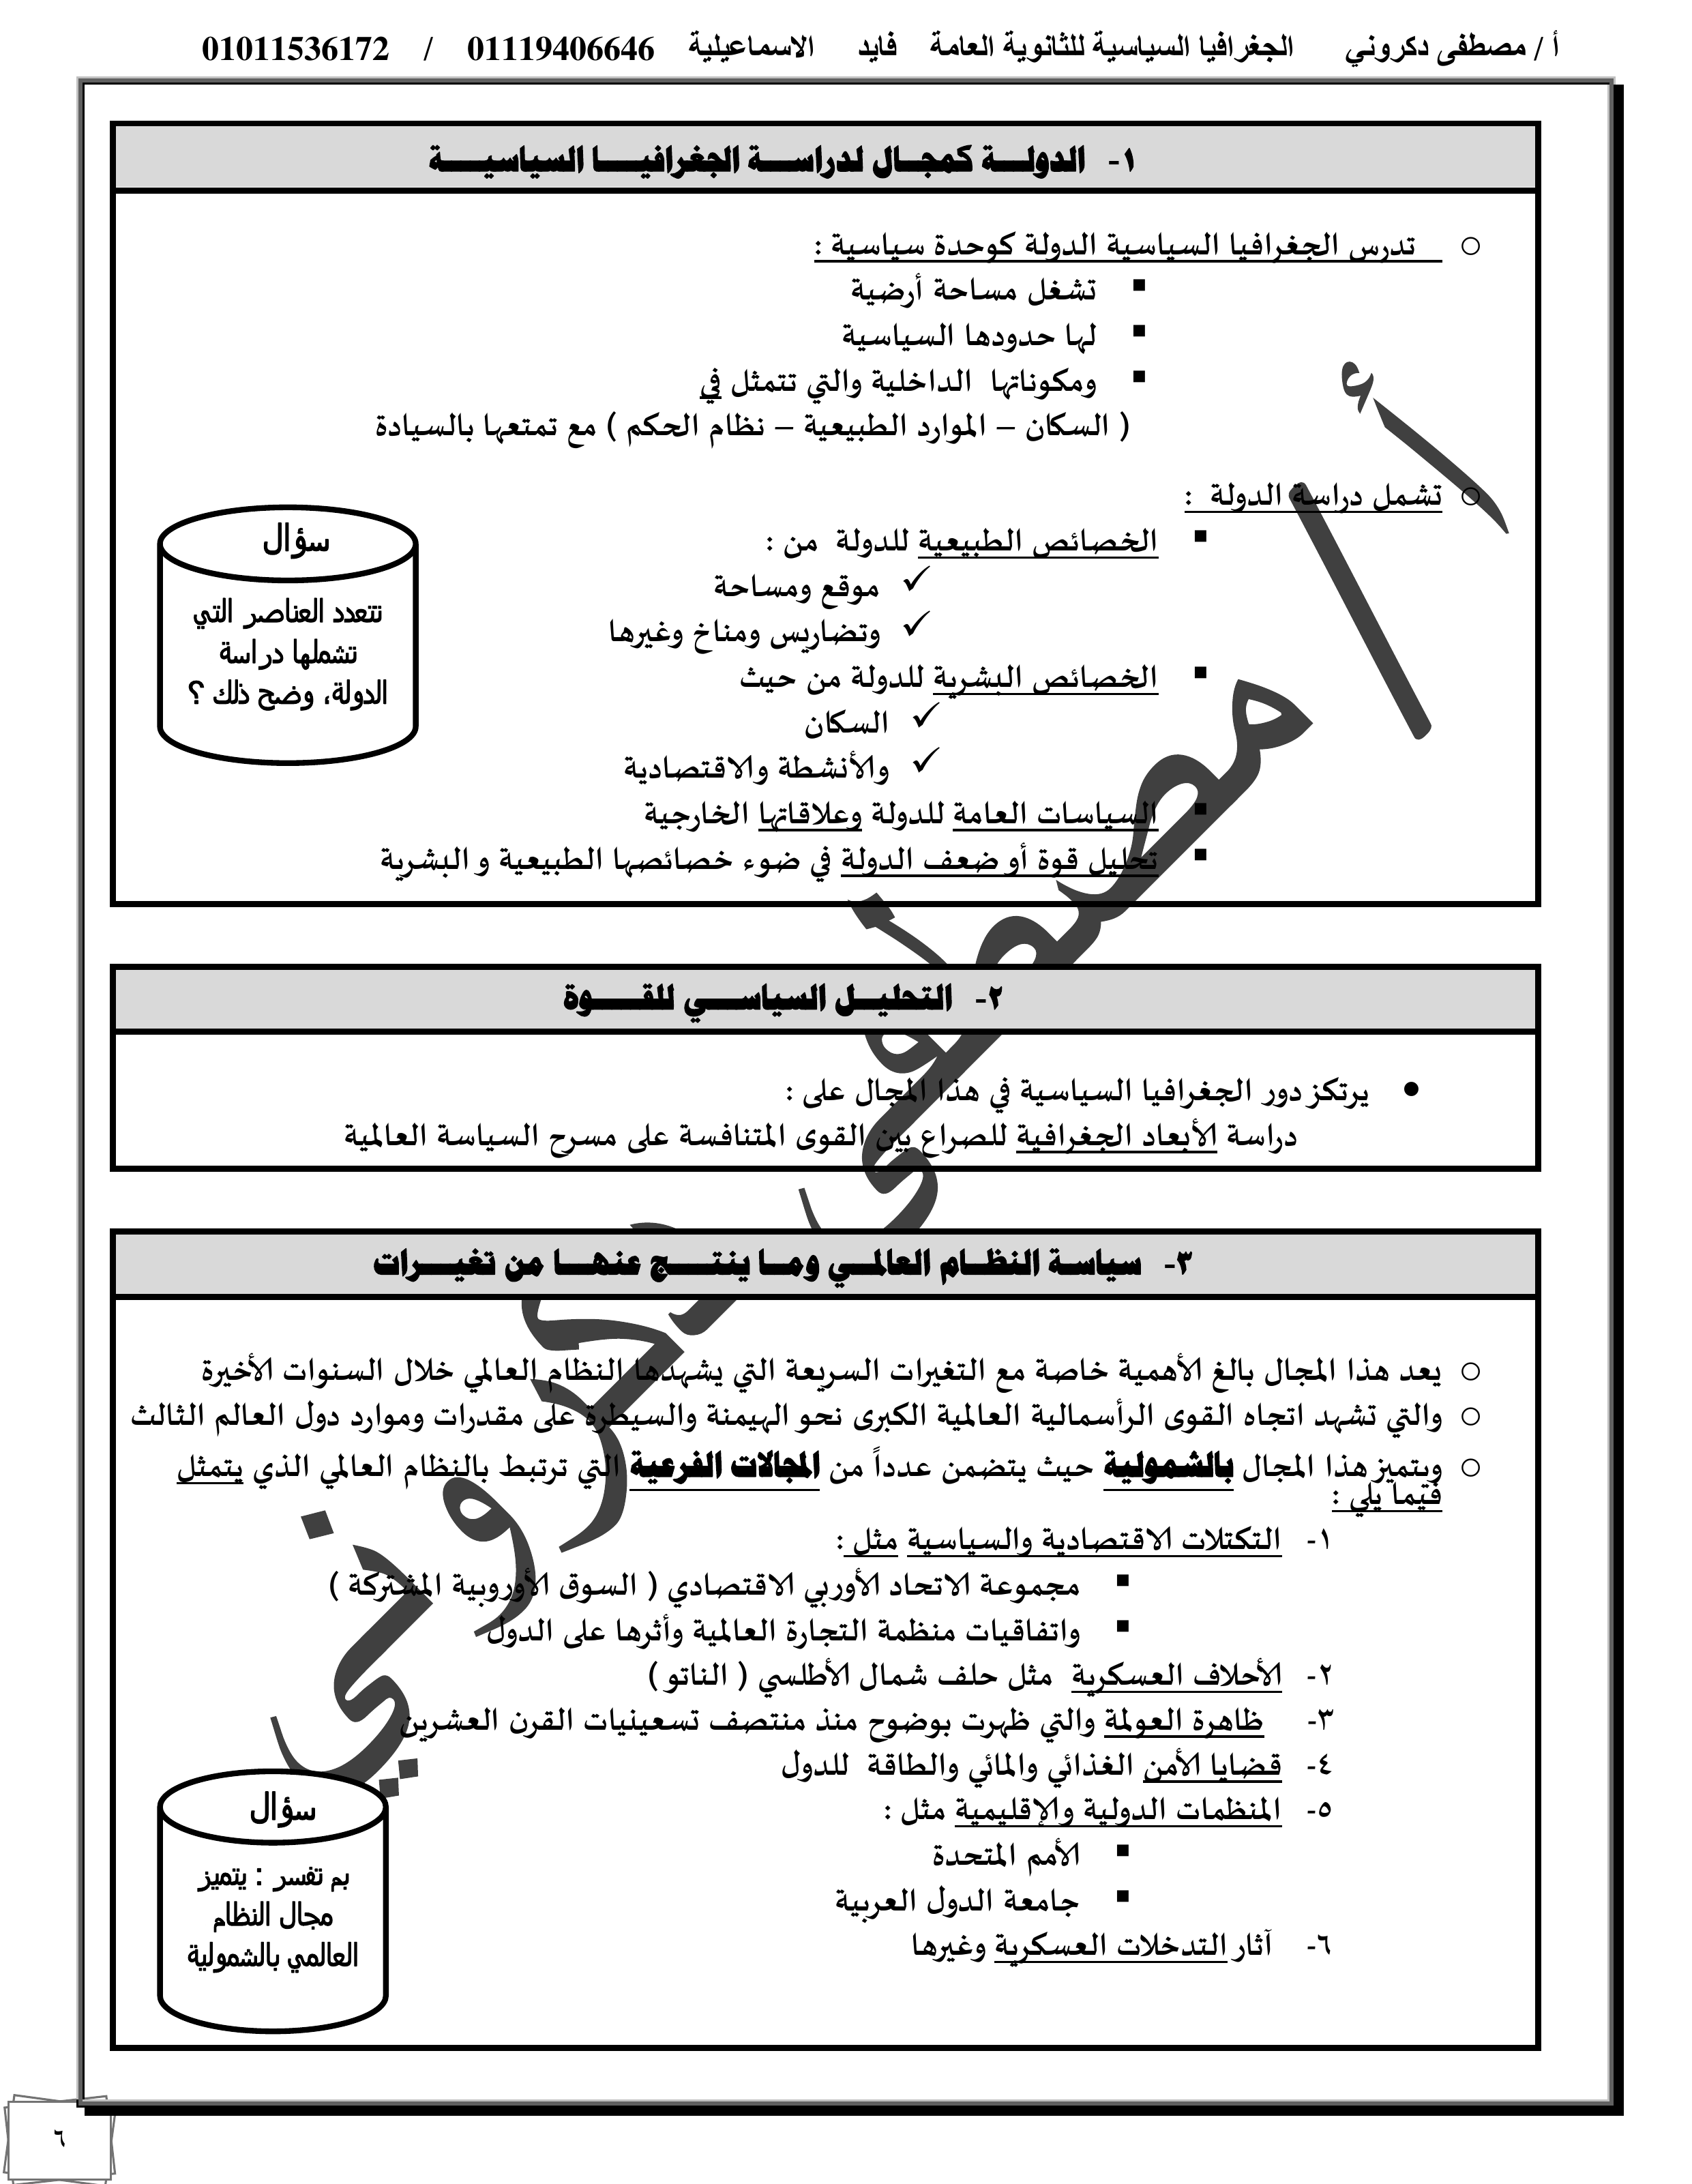 أ / مصطفى دكروني الجغرافيا السياسية للثانوية العامة فايد الاسماعيلية 01119406646 / 01011536172
١- الدولـــة كمجـــال لدراســـة الجغرافيـــا السياسيـــة
○ تدرس الجغرافيا السياسية الدولة كوحدة سياسية :
▪ تشغل مساحة أرضية
▪ لها حدودها السياسية
▪ ومكوناتها الداخلية والتي تتمثل في
( السكان – الموارد الطبيعية – نظام الحكم ) مع تمتعها بالسيادة
○ تشمل دراسة الدولة :
▪ الخصائص الطبيعية للدولة من :
✓ موقع ومساحة
✓ وتضاريس ومناخ وغيرها
▪ الخصائص البشرية للدولة من حيث
✓ السكان
✓ والأنشطة والاقتصادية
▪ السياسات العامة للدولة وعلاقاتها الخارجية
▪ تحليل قوة أو ضعف الدولة في ضوء خصائصها الطبيعية و البشرية
سؤال
تتعدد العناصر التي
تشملها دراسة
الدولة، وضح ذلك ؟
٢- التحليـــل السياســـي للقـــــوة
• يرتكز دور الجغرافيا السياسية في هذا المجال على :
دراسة الأبعاد الجغرافية للصراع بين القوى المتنافسة على مسرح السياسة العالمية
٣- سياسة النظـــام العالمـــي ومـــا ينتـــــج عنهـــا من تغيـــرات
○ يعد هذا المجال بالغ الأهمية خاصة مع التغيرات السريعة التي يشهدها النظام العالمي خلال السنوات الأخيرة
○ والتي تشهد اتجاه القوى الرأسمالية العالمية الكبرى نحو الهيمنة والسيطرة على مقدرات وموارد دول العالم الثالث
○ ويتميز هذا المجال بالشمولية حيث يتضمن عدداً من المجالات الفرعية التي ترتبط بالنظام العالمي الذي يتمثل
فيما يلي :
١- التكتلات الاقتصادية والسياسية مثل :
▪ مجموعة الاتحاد الأوربي الاقتصادي ( السوق الأوروبية المشتركة )
▪ واتفاقيات منظمة التجارة العالمية وأثرها على الدول
٢- الأحلاف العسكرية مثل حلف شمال الأطلسي ( الناتو )
٣- ظاهرة العولمة والتي ظهرت بوضوح منذ منتصف تسعينيات القرن العشرين
٤- قضايا الأمن الغذائي والمائي والطاقة للدول
٥- المنظمات الدولية والإقليمية مثل :
▪ الأمم المتحدة
▪ جامعة الدول العربية
٦- آثار التدخلات العسكرية وغيرها
سؤال
بم تفسر : يتميز
مجال النظام
العالمي بالشمولية
أ / مصطفى دكروني
٦